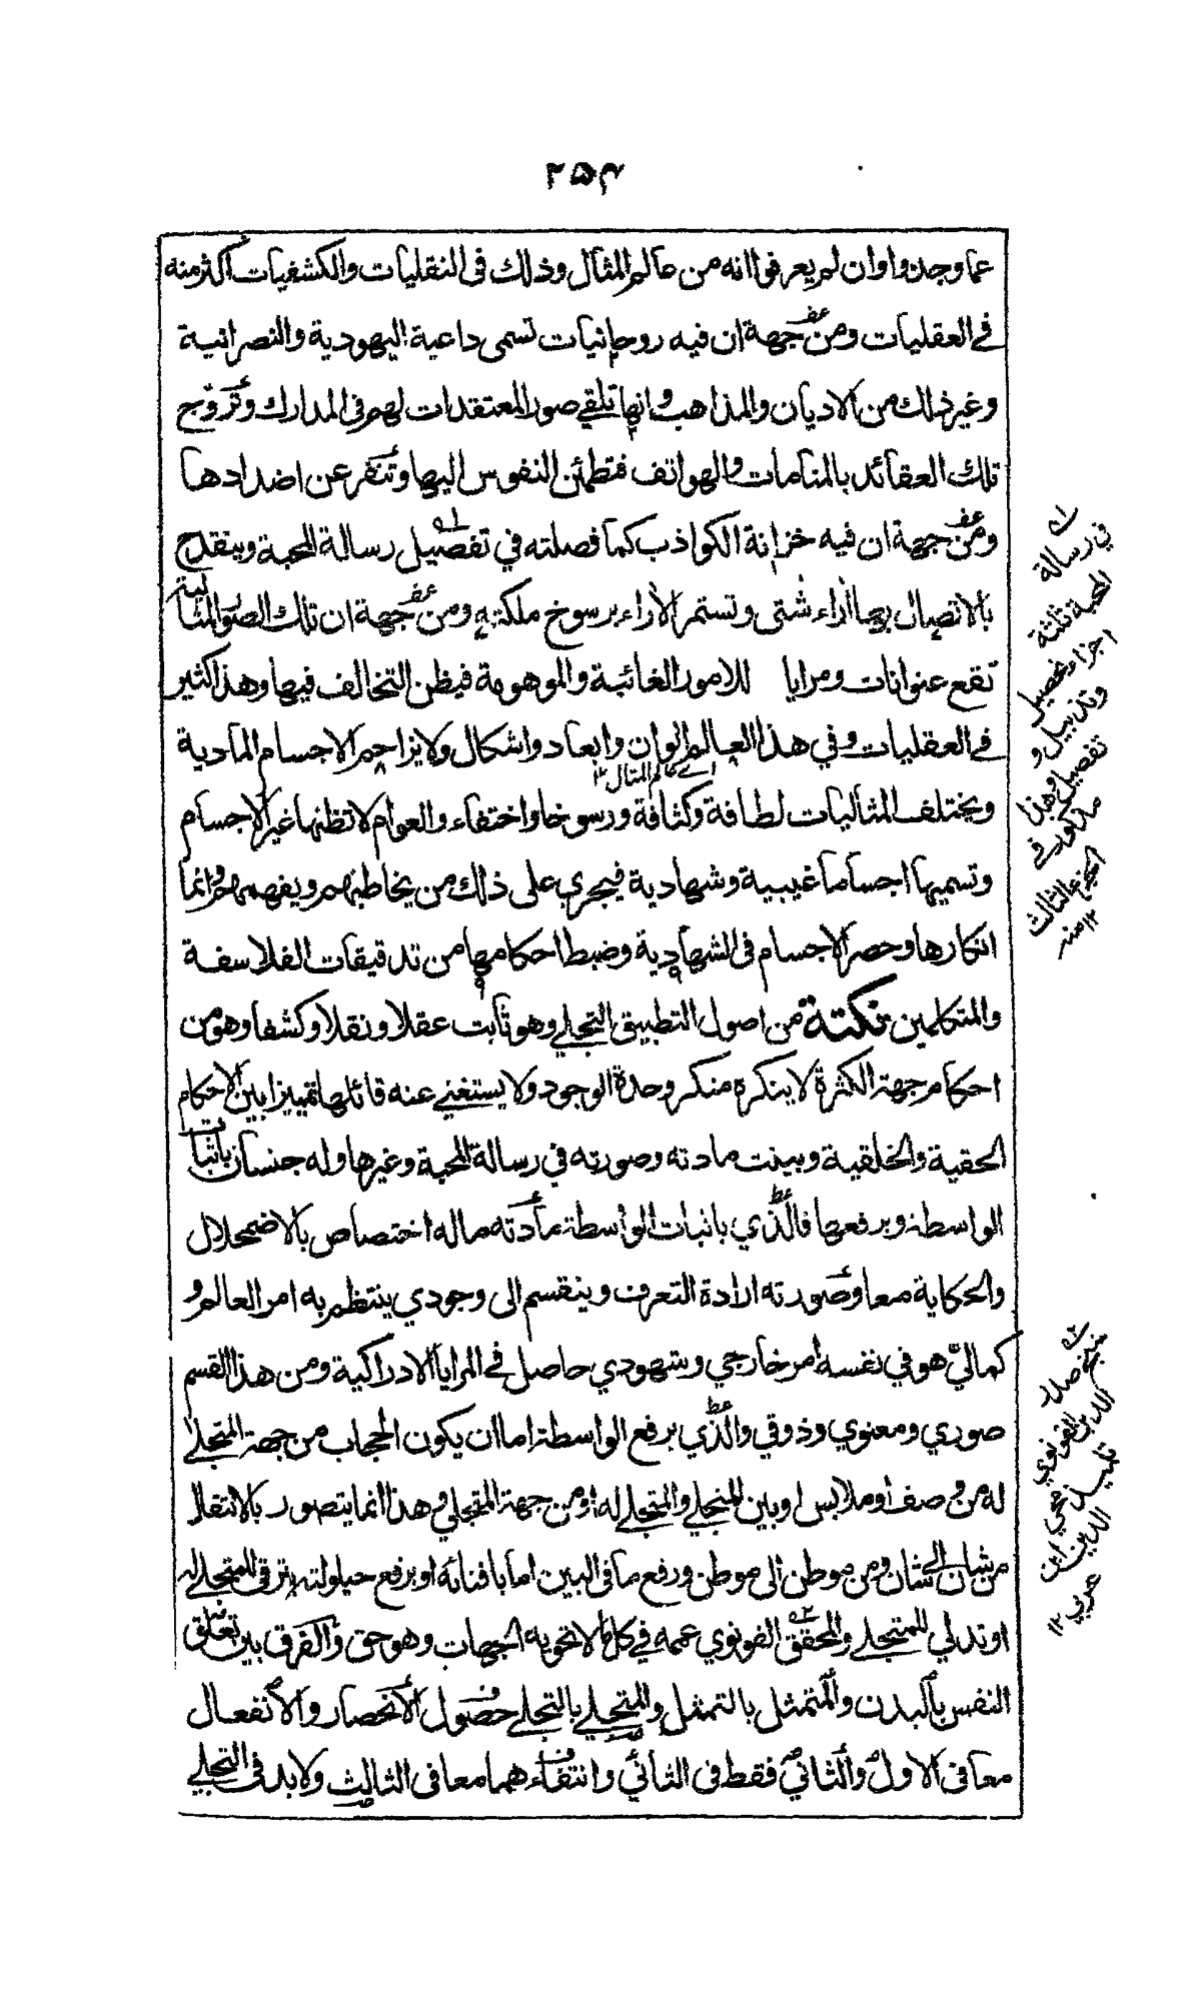 ۲۵۴
عما وجدوا وان لم يعرفوا انه من عالم المثال وذلك فى النقليات والكشفيات اكثر منه
في العقليات ومن جهة ان فيه روحانيات تسمى داعية اليهودية والنصرانية
وغير ذلك من الاديان والمذاهب وانها تلقي صور المعتقدات لهم فى المدارك وتروّج
تلك العقائد بالمنامات والهواتف فتطمئن النفوس اليها وتنفر عن اضدادها
ومن جهة ان فيه خزانة الكواذب كما فصلته في تفصيل رسالة المحبة وينقدح
بالاتصال بها اراء شتى وتستمر الأراء برسوخ ملكته ومن جهة ان تلك الصور المثالية
تقع عنوانات ومرايا للامور الغائبة والموهومة فيظن التخالف فيها وهذا كثير
في العقليات وفي هذا العالم الوان وابعاد واشكال ولا يزاحم الاجسام المادية
اے عالم المثال ۱۲
ويختلف المثاليات لطافة وكثافة ورسوخا واختفاء والعوام لا تظنها غير الاجسام
وتسميها اجساما غيبية وشهادية فيجري على ذلك من يخاطبهم ويفهمهم وانما
انكارها وحصر الاجسام فى الشهادية وضبط احكامها من تدقيقات الفلاسفة
والمتكلمين نكتة من اصول التطبيق التجلي وهو ثابت عقلا ونقلا وكشفا وهو من
احكام جهة الكثرة لا ينكره منكر وحدة الوجود ولا يستغني عنه قائلها تمييزا بين الاحكام
الحقية والخلقية وبينت مادته وصورته في رسالة المحبة وغيرها وله جنسان باثبات
الواسطة وبرفعها فالذي باثبات الواسطة مادته ماله اختصاص بالاضمحلال
والحكاية معا وصورته ارادة التعرف وينقسم الى وجودي ينتظم به امر العالم و
كمالي هو في نفسه امر خارجي وشهودي حاصل في المرايا الادراكية ومن هذا القسم
صوري ومعنوي وذوقي والذي برفع الواسطة اما ان يكون الحجاب من جهة المتجلى
له من وصف او ملابس او بين المتجلي والمتجلى له او من جهة المتجلي وهذا انما يتصور بالانتقال
من شان الى شان ومن موطن الى موطن ورفع ما فى البين اما بافنائه او برفع حيلولته بترقي المتجلى له
او تدلي المتجلي والمحقق القونوي عممه في كل ما لا تحويه الجهات وهو حق والفرق بين تعلق
النفس بالبدن والمتمثل بالتمثل والمتجلي بالتجلي حصول الانحصار والانفعال
معا فى الاول والثاني فقط فى الثاني وانتفاءهما معا فى الثالث ولا بد فى التجلي
في رسالة
المحبة ثلثة
اجزاء تحصيل
وتذييل و
تفصيل وهذا
مذكور في
الجزء الثالث
۱۲ منه
شيخ صدر
الدين القونوي
تلميذ محي
الدين ابن
عربي ۱۲